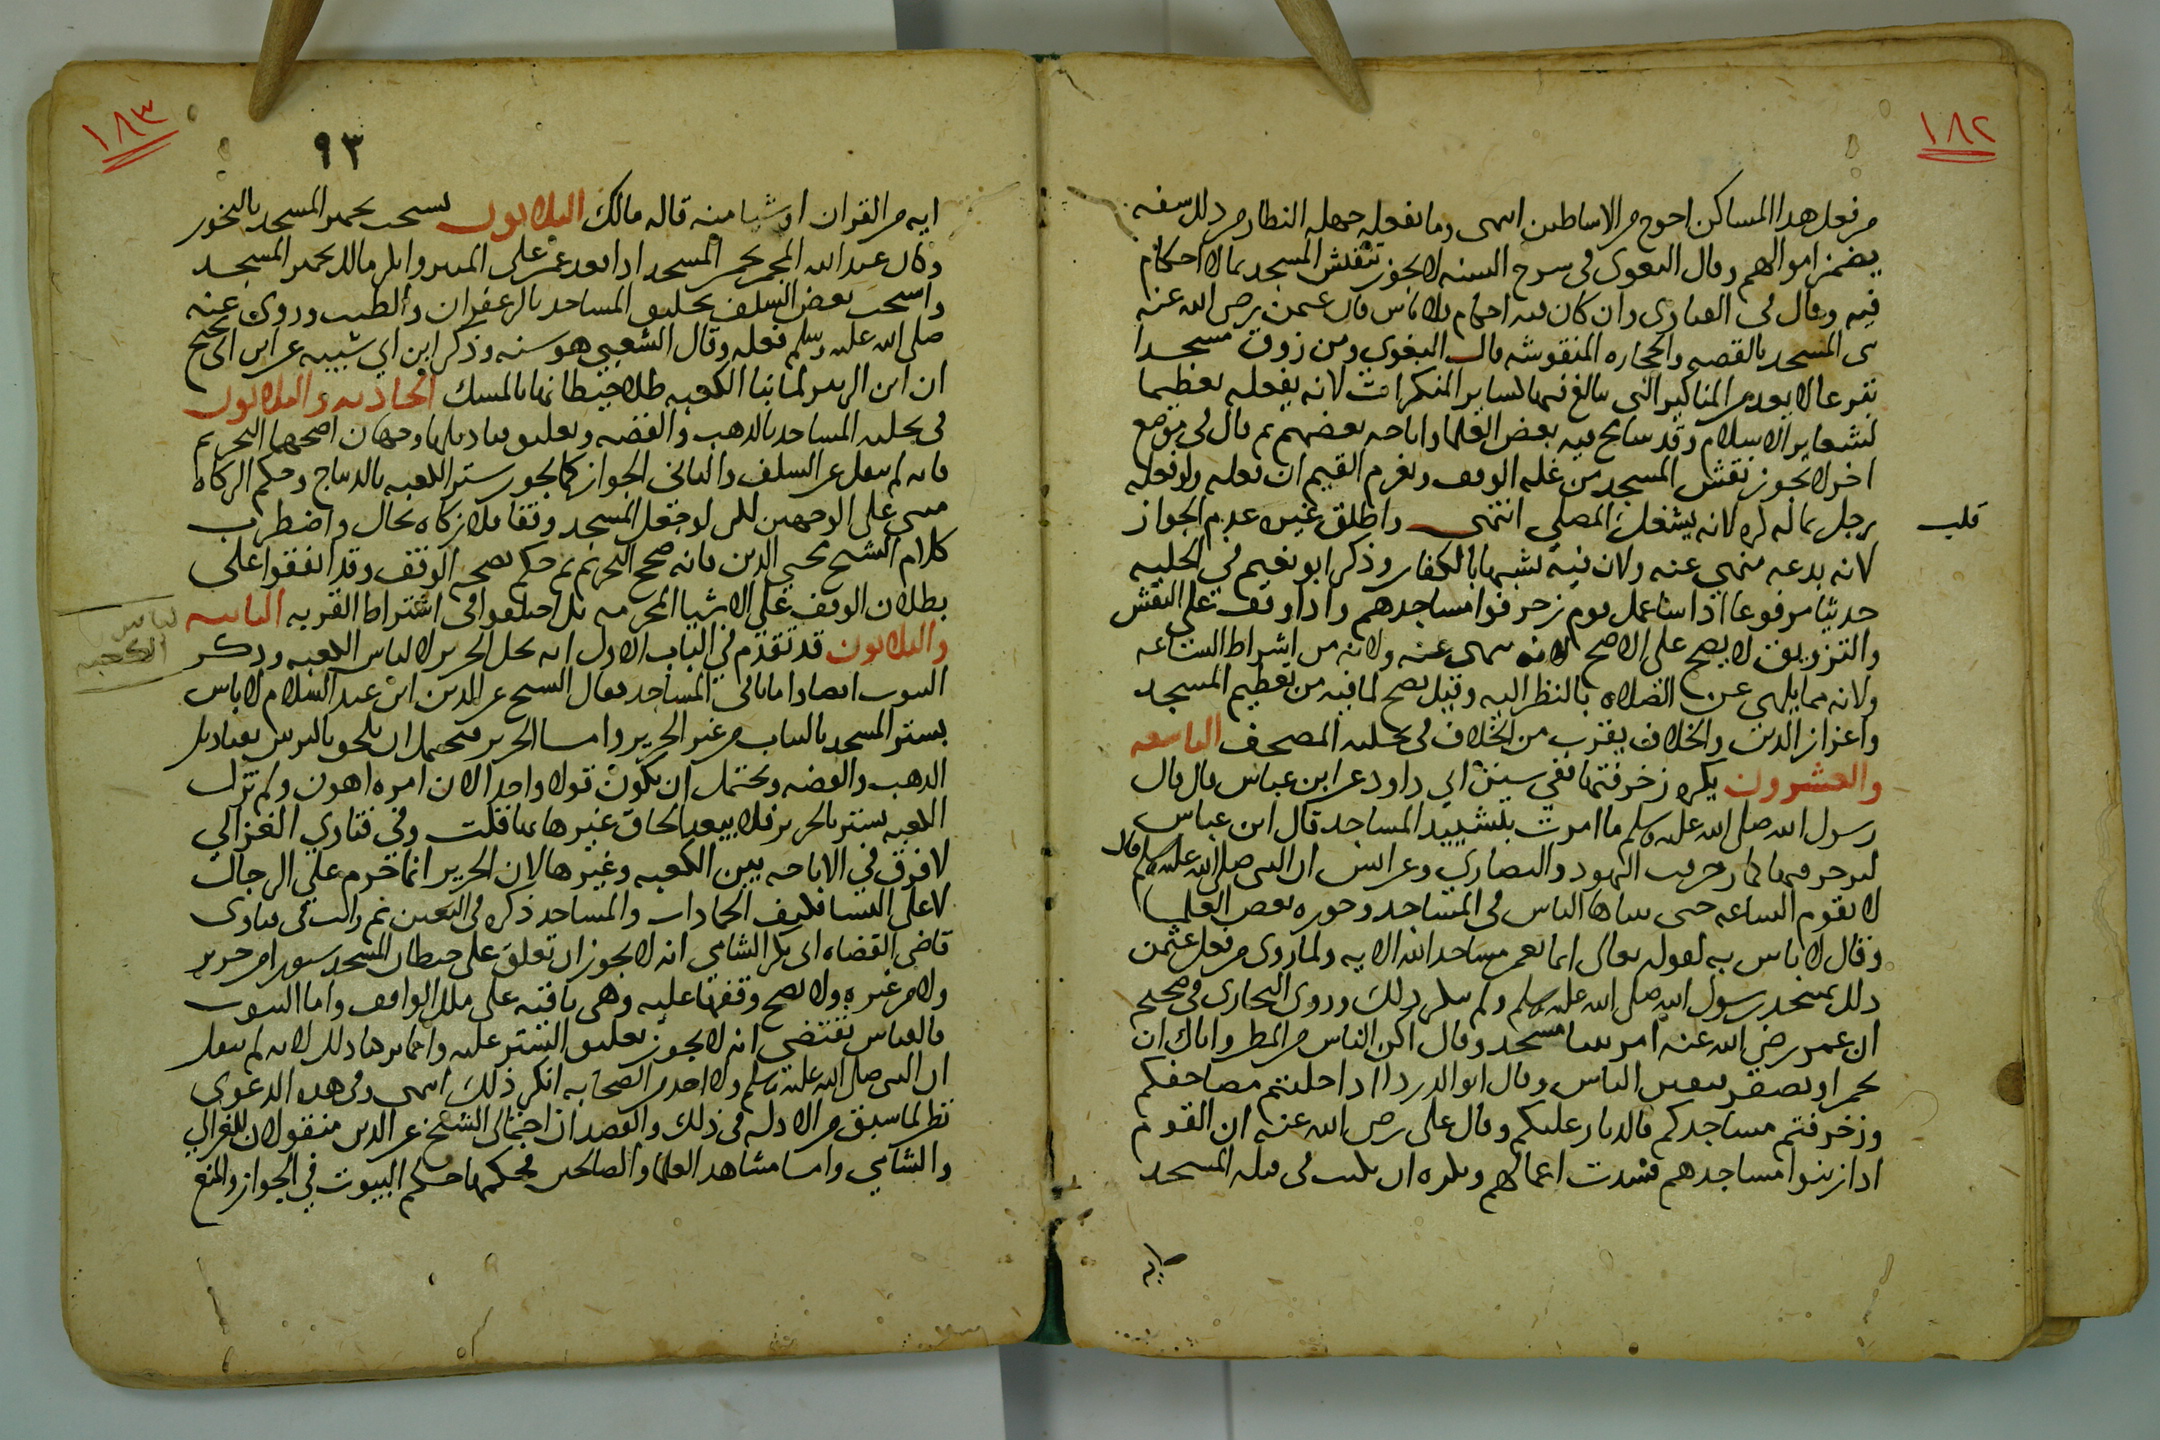 ١٨٢
من فعل هذا المساكن احوج من الاساطين انتهى وما يفعله جهله النظار من ذلك سفه
يضمن اموالهم وقال البغوى فى شرح السنه لا يجوز تنقيش المسجد بما لا احكام
فيه وقال فى الفتاوى وان كان فيه احكام فلا باس فان عثمن رضى الله عنه
بنى المسجد بالقصه والحجاره المنقوشه قال البغوي ومن زوق مسجدا
تبرعا لا يعد من المناكير التى يبالغ فيها كساير المنكرات لانه يفعله تعظيما
لشعاير الاسلام وقد سامح فيه بعض العلما واباحه بعضهم ثم قال فى موضع
اخر لا يجوز نقش المسجد من غله الوقف ويغرم القيم ان فعله ولو فعله
رجل بماله كره لانه يشغل المصلي انتهى واطلق غيره عدم الجواز
قلب
لانه بدعه منهي عنه ولان فيه تشبها بالكفار وذكر ابو نعيم في الحليه
حديثا مرفوعا اذا ساعمل قوم زخرفوا مساجدهم واذا وقف على النقش
والتزويق لا يصح على الاصح لانه منهى عنه ولانه من اشراط الساعه
ولانه مما يلهي عن الصلاه بالنظر اليه وقيل يصح لما فيه من تعظيم المسجد
واعزاز الدين والخلاف يقرب من الخلاف فى تحليه المصحف التاسعه
والعشرون يكره زخرفتها ففي سنن ابي داود عن ابن عباس قال قال
رسول الله صلى الله عليه وسلم ما امرت بتشييد المساجد قال ابن عباس
لتزخرفنها كما زخرفت اليهود والنصاري وعن انس ان النبى صلى الله عليه وسلم قال
لا تقوم الساعه حتى يتباها الناس فى المساجد وجوزه بعض العلما
وقال لا باس به لقوله تعالى انما يعمر مساجد الله الايه ولما روى من فعل عثمن
ذلك بمسجد رسول الله صلى الله عليه وسلم ولم ينكر ذلك وروى البخارى فى صحيح
ان عمر رضي الله عنه امر ببنا مسجد وقال اكن الناس من المطر واياك ان
تحمر او تصفر فتفتن الناس وقال ابو الدردا اذا حليتم مصاحفكم
وزخرفتم مساجدكم فالدبار عليكم وقال على رضى الله عنه ان القوم
اذا زينوا مساجدهم فسدت اعمالهم ويكره ان يكتب فى قبله المسجد
ايه
١٨٣
٩٣
ايه من القران او شيا منه قاله مالك الثلاثون يستحب تجمير المسجد بالبخور
وكان عبد الله المجمر يجمر المسجد اذا قعد عمر على المنبر وانكر مالك تجمير المسجد
واستحب بعض السلف تخليق المساجد بالزعفران والطيب وروى عنه
صلى الله عليه وسلم فعله وقال الشعبي هو سنه وذكر ابن ابي شيبه عن ابن ابى نجيح
ان ابن الزبير لما بنا الكعبه طلا حيطانها بالمسك الحاديه والثلاثون
فى تحليه المساجد بالذهب والفضه وتعليق قناديلها وجهان اصحهما التحريم
فانه لم ينقل عن السلف والثانى الجواز كما يجوز ستر الكعبه بالديباج وحكم الزكاه
مبنى على الوجهين لكن لو جعل المسجد وقفا فلا زكاه بحال واضطرب
كلام الشيخ محيي الدين فانه صحح التحريم ثم حكم بصحه الوقف وقد اتفقوا على
بطلان الوقف على الاشيا المحرمه بل اختلفوا فى اشتراط القربه الثانيه
لباس
الكعبه
والثلاثون قد تقدم في الباب الاول انه يحل الحرير لالباس الكعبه وذكر
البيوت ايضا واما باقى المساجد فقال الشيخ عز الدين ابن عبد السلام لا باس
بستر المسجد بالثياب من غير الحرير واما الحرير فيحتمل ان يلحق بالتزين بقناديل
الذهب والفضه ويحتمل ان يكون قولا واحدا لان امره اهون ولم تزل
الكعبه تستر بالحرير فلا يبعد الحاق غيرها بها قلت وفي فتاوي الغزالي
لا فرق في الاباحه بين الكعبه وغيرها لان الحرير انما حرم علي الرجال
لا على النسا فكيف الجمادات والمساجد ذكره فى اليمين ثم رايت فى فتاوى
قاضى القضاه ابى بكر الشامي انه لا يجوز ان تعلق على حيطان المسجد ستورا من حرير
ولا من غيره ولا يصح وقفها عليه وهى باقيه على ملك الواقف واما البيوت
فالقياس يقتضي انه لا يجوز تعليق الستر عليه وانما كرهنا ذلك لانه لم ينقل
ان النبى صلى الله عليه وسلم ولا احد من الصحابه انكر ذلك انتهى وفى هذه الدعوى
نظر لما سبق من الادله فى ذلك والقصد ان احتمالى الشيخ عز الدين منقولان للغزالي
والشامي واما مشاهد العلما والصالحين فحكمها حكم البيوت في الجواز والمنع